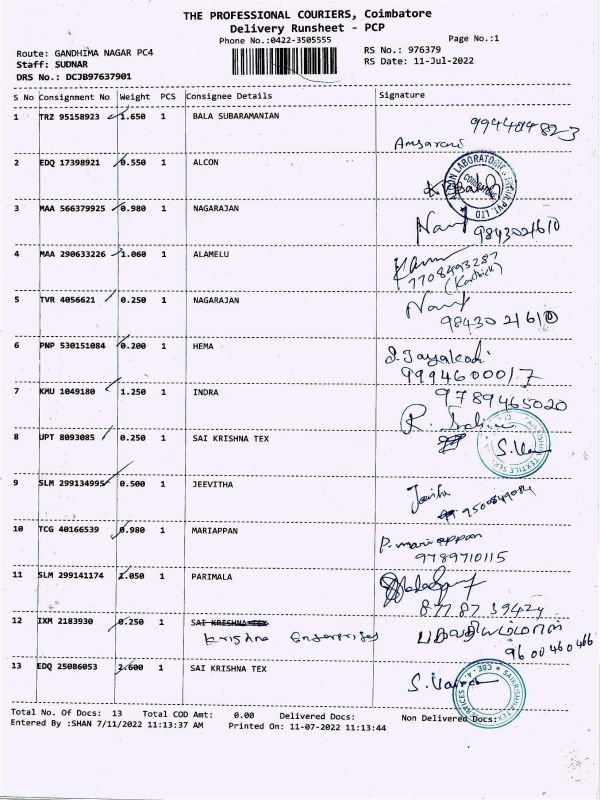 THE PROFESSIONAL COURIERS, Coimbatore
Delivery Runsheet - PCP
Phone No.:0422-3505555
Page No.:1
Route: GANDHIMA NAGAR PC4
RS No.: 976379
Staff: SUDNAR
RS Date: 11-Jul-2022
DRS No.: DCJB97637901
S No Consignment No Weight PCS Consignee Details Signature
1 TRZ 95158923 1.650 1 BALA SUBARAMANIAN
2 EDQ 17398921 0.550 1 ALCON
3 MAA 566379925 0.980 1 NAGARAJAN
9843021610
4 MAA 290633226 1.060 1 ALAMELU
7708493287
(Karthick)
5 TVR 4056621 0.250 1 NAGARAJAN
9843021610
6 PNP 530151084 0.200 1 HEMA
9994600017
7 KMU 1049180 1.250 1 INDRA
9789465020
8 UPT 8093085 0.250 1 SAI KRISHNA TEX
9 SLM 299134995 0.500 1 JEEVITHA
10 TCG 40166539 0.980 1 MARIAPPAN
P. mariappan
9789710115
11 SLM 299141174 1.050 1 PARIMALA
12 IXM 2183930 0.250 1 SAI KRISHNA TEX
Krishna Enterprises
9600460466
13 EDQ 25086053 2.600 1 SAI KRISHNA TEX
Total No. Of Docs: 13 Total COD Amt: 0.00 Delivered Docs: Non Delivered Docs:
Entered By :SHAN 7/11/2022 11:13:37 AM Printed On: 11-07-2022 11:13:44